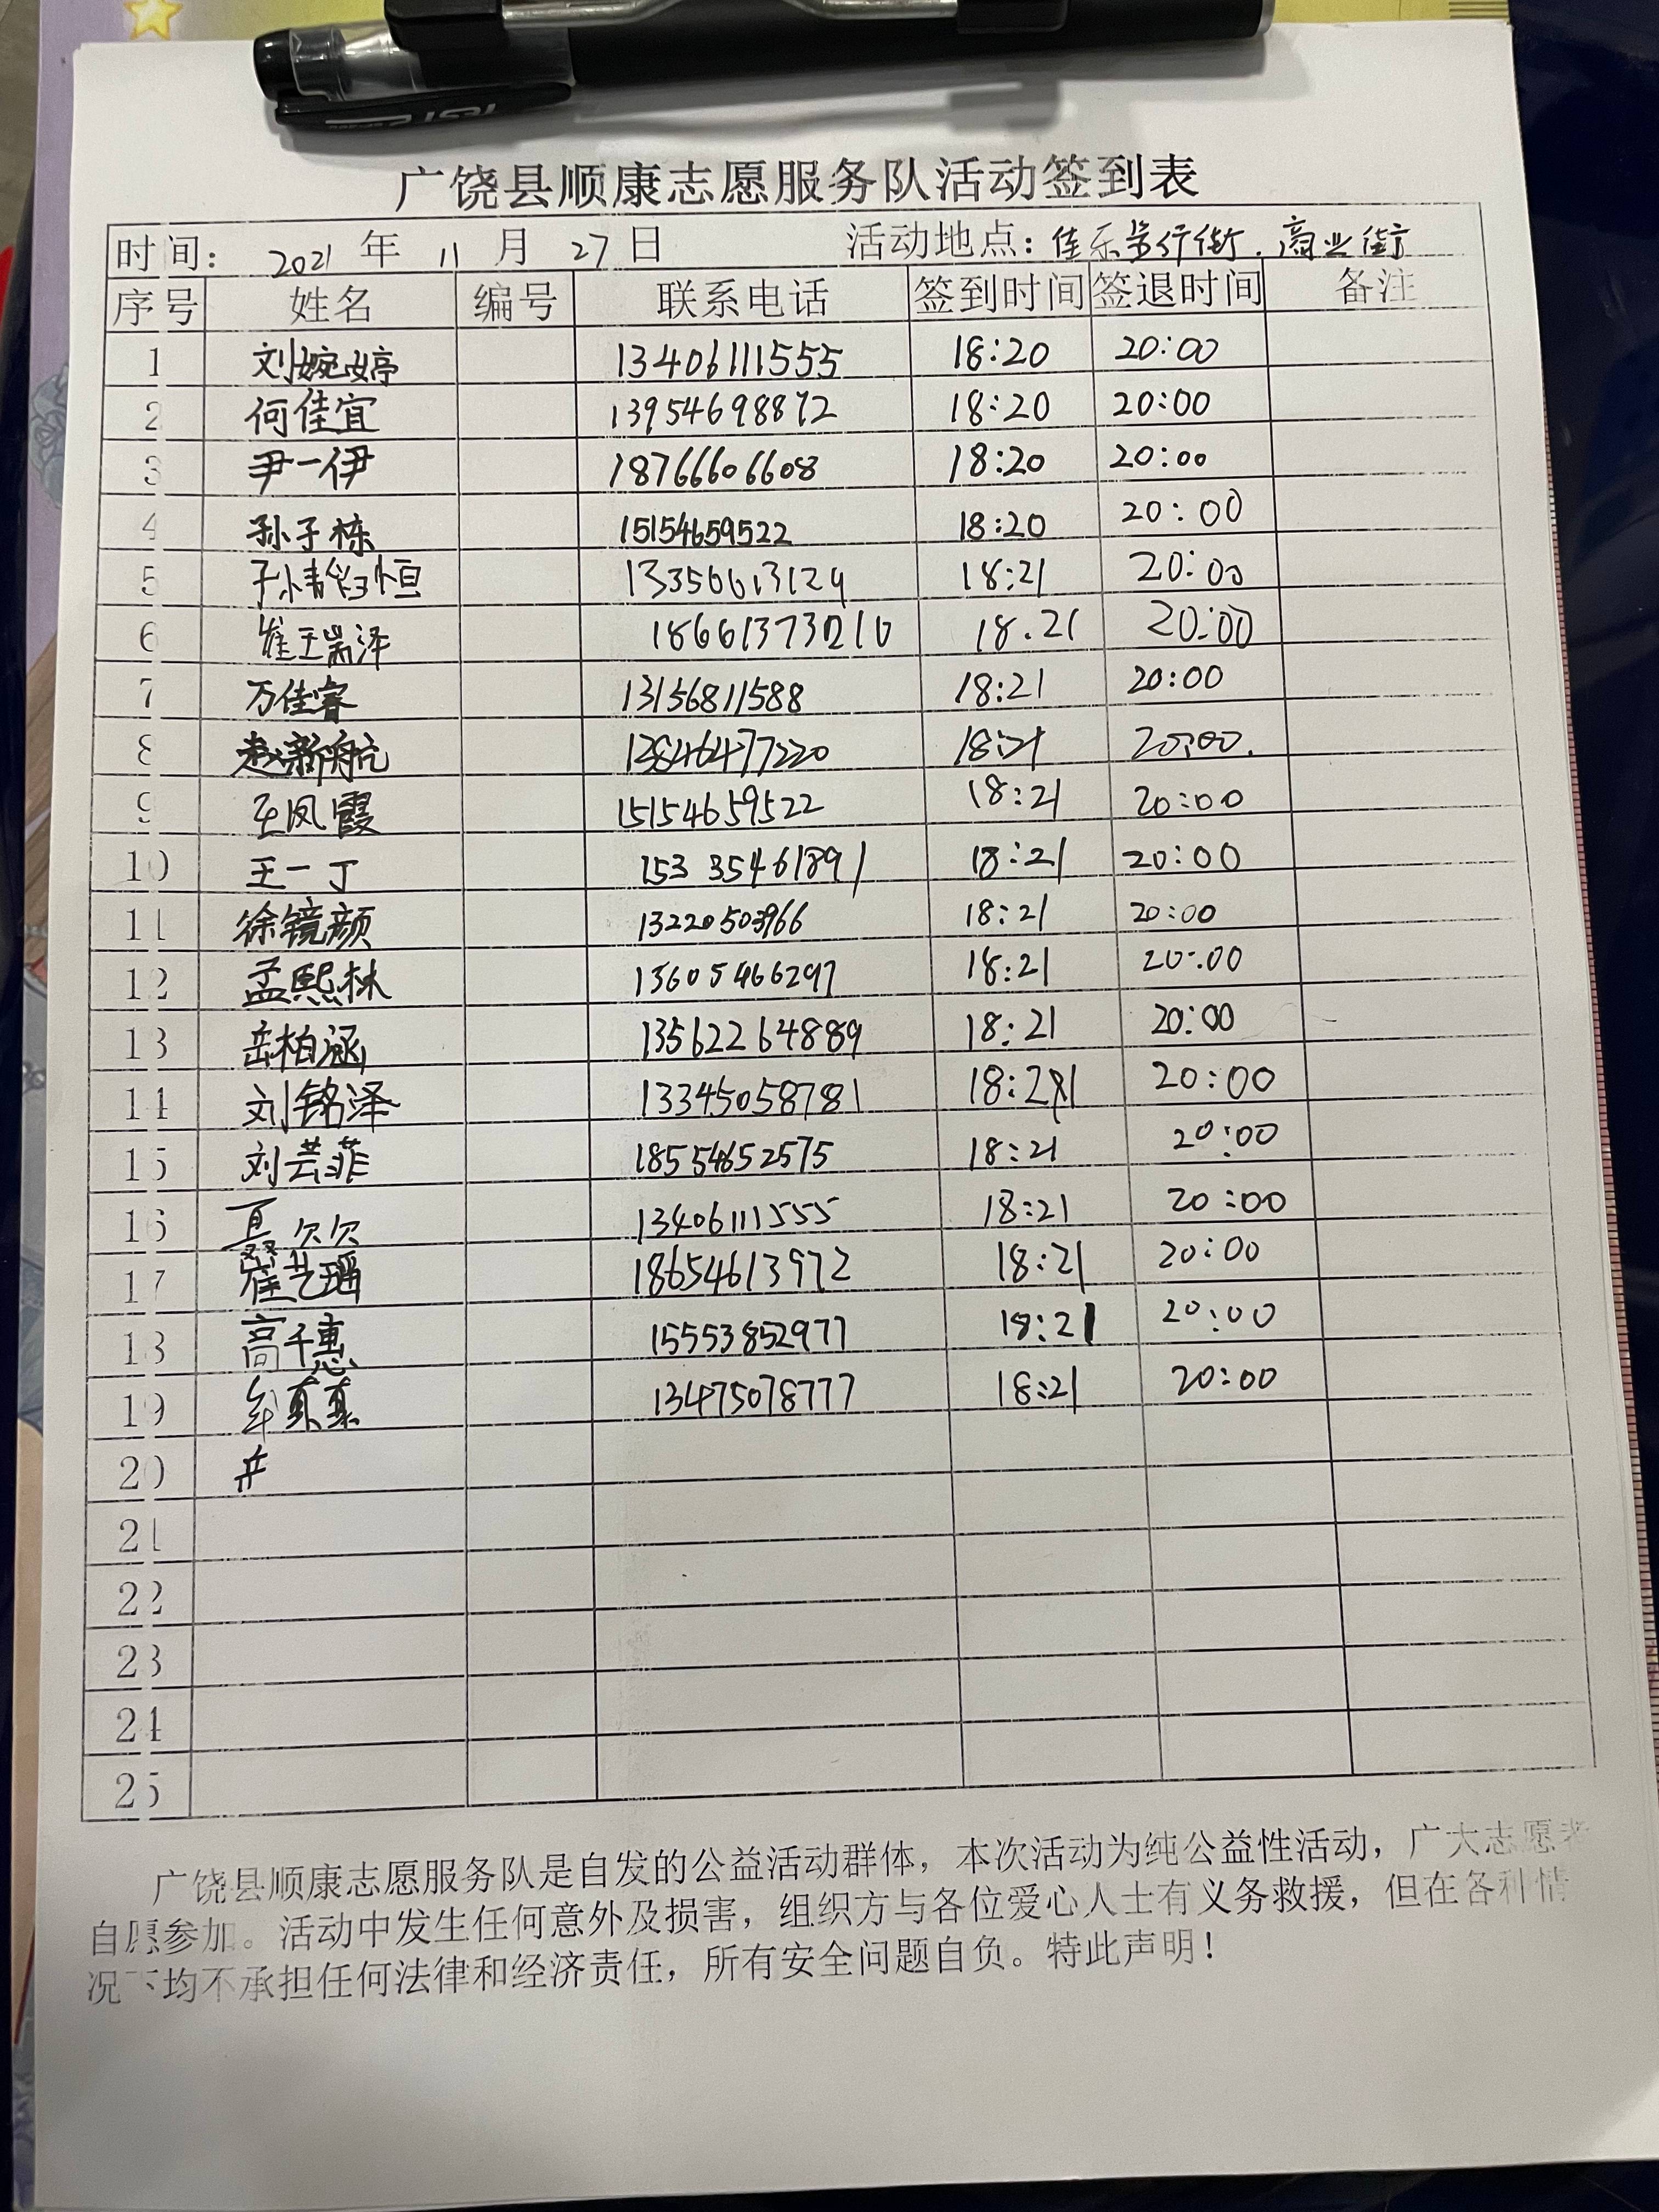 广饶县顺康志愿服务队活动签到表
时间: 2021 年 11 月 27 日 活动地点: 佳乐步行街. 商业街
序号 姓名 编号 联系电话 签到时间 签退时间 备注
1 刘婉婷 13406111555 18:20 20:00
2 何佳宜 13954698872 18:20 20:00
3 尹一伊 18766606608 18:20 20:00
4 孙子栋 15154659522 18:20 20:00
5 13356613124 18:21 20:00
6 崔玉瑞泽 18.21 20:00
7 万佳睿 13156811588 18:21 20:00
8 赵新航 13846477220 18:21 20:00.
9 王凤霞 15154659522 18:21 20:00
10 王一丁 15335461891 18:21 20:00
11 徐镜颜 13220503966 18:21 20:00
12 孟熙林 13605466297 18:21 20:00
13 岳柏涵 13562264889 18:21 20:00
14 刘铭泽 13345058781 18:21 20:00
15 刘芸菲 18554652575 18:21 20:00
16 聂欠欠 13406111555 18:21 20:00
17 崔艺瑶 18654613972 18:21 20:00
18 高千惠 15553852977 18:21 20:00
19 真真 13475078777 18:21 20:00
20
21
22
23
24
25
广饶县顺康志愿服务队是自发的公益活动群体，本次活动为纯公益性活动，广大志愿者
自愿参加。活动中发生任何意外及损害，组织方与各位爱心人士有义务救援，但在各种情
况下均不承担任何法律和经济责任，所有安全问题自负。特此声明！